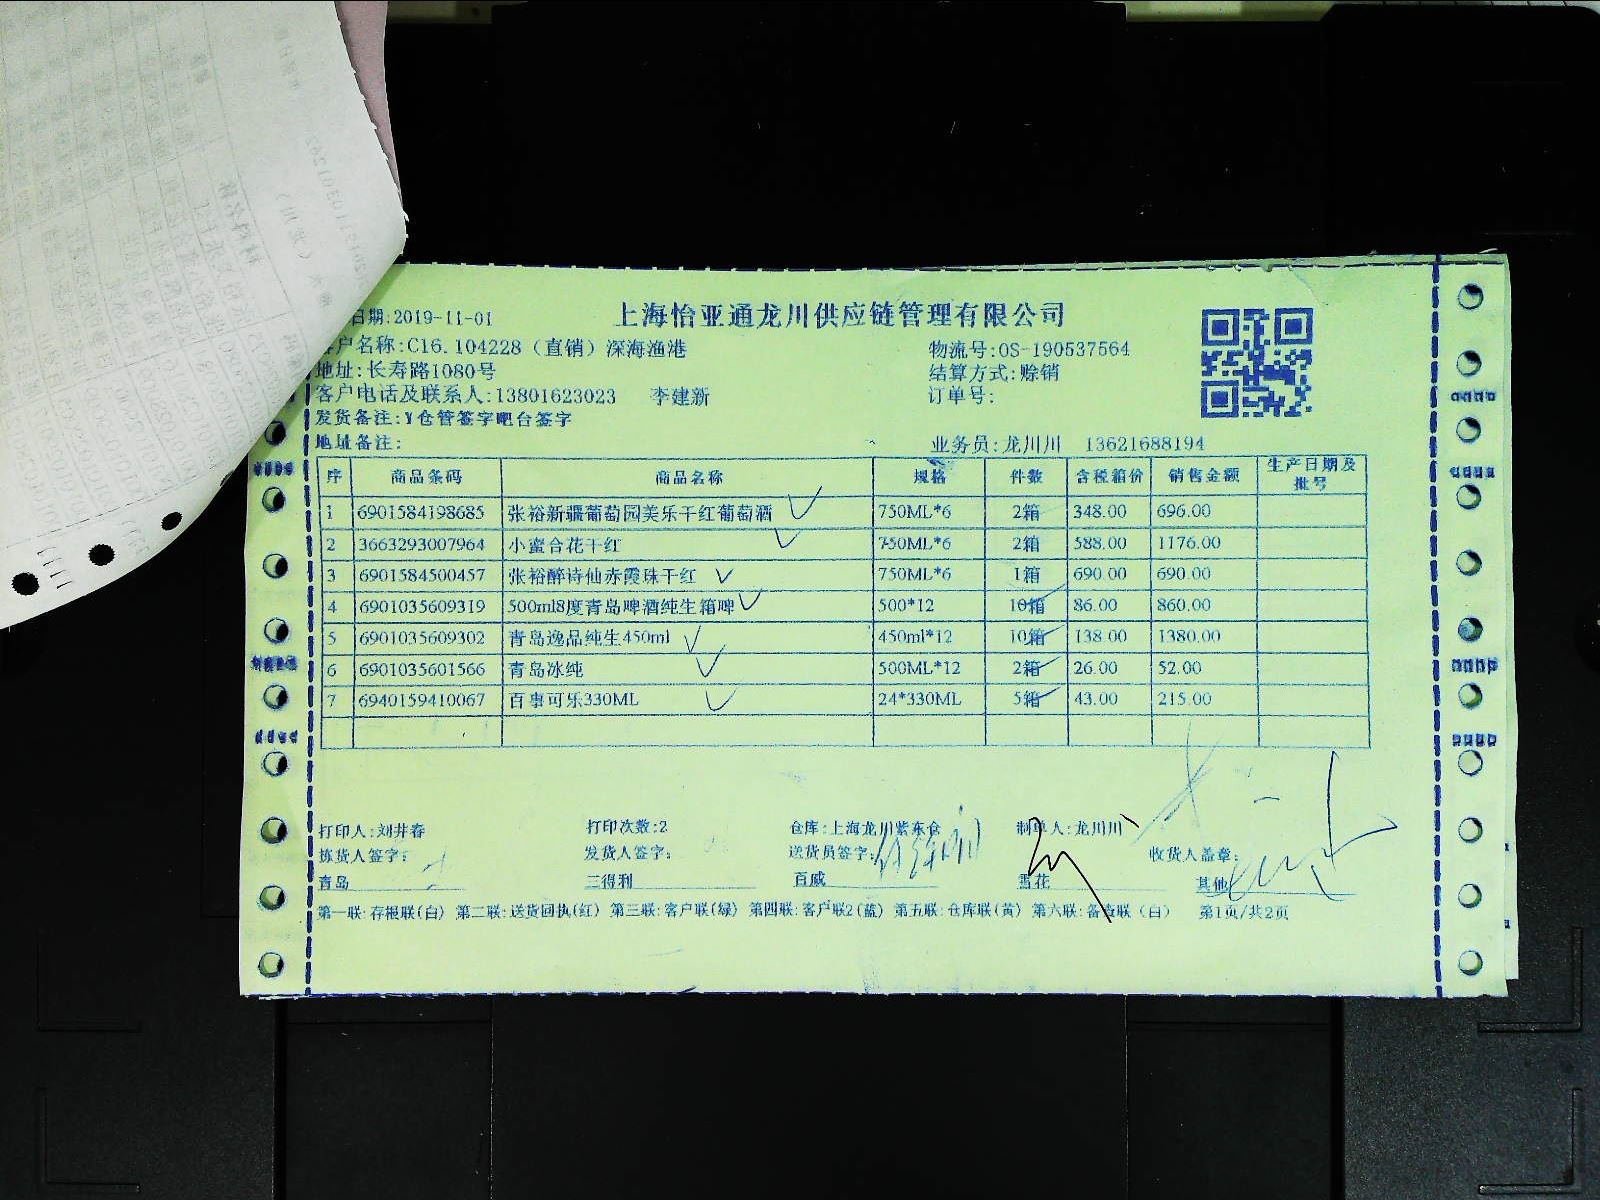 日期:2019-11-01
上海怡亚通龙川供应链管理有限公司
客户名称:C16.104228（直销）深海渔港
物流号:OS-190537564
地址:长寿路1080号
结算方式:赊销
客户电话及联系人:13801623023 李建新
订单号:
发货备注:Y仓管签字吧台签字
地址备注:
业务员:龙川川 13621688194
序 商品条码 商品名称 规格 件数 含税箱价 销售金额 生产日期及批号
1 6901584198685 张裕新疆葡萄园美乐干红葡萄酒 750ML*6 2箱 348.00 696.00
2 3663293007964 小蜜合花干红 750ML*6 2箱 588.00 1176.00
3 6901584500457 张裕醉诗仙赤霞珠干红 750ML*6 1箱 690.00 690.00
4 6901035609319 500ml8度青岛啤酒纯生箱啤 500*12 10箱 86.00 860.00
5 6901035609302 青岛逸品纯生450ml 450ml*12 10箱 138.00 1380.00
6 6901035601566 青岛冰纯 500ML*12 2箱 26.00 52.00
7 6940159410067 百事可乐330ML 24*330ML 5箱 43.00 215.00
打印人:刘井春 打印次数:2 仓库:上海龙川紫东仓 制单人:龙川川
拣货人签字: 发货人签字: 送货员签字: 收货人盖章:
青岛 三得利 百威 雪花 其他
第一联:存根联(白) 第二联:送货回执(红) 第三联:客户联(绿) 第四联:客户联2(蓝) 第五联:仓库联(黄) 第六联:备查联（白） 第1页/共2页